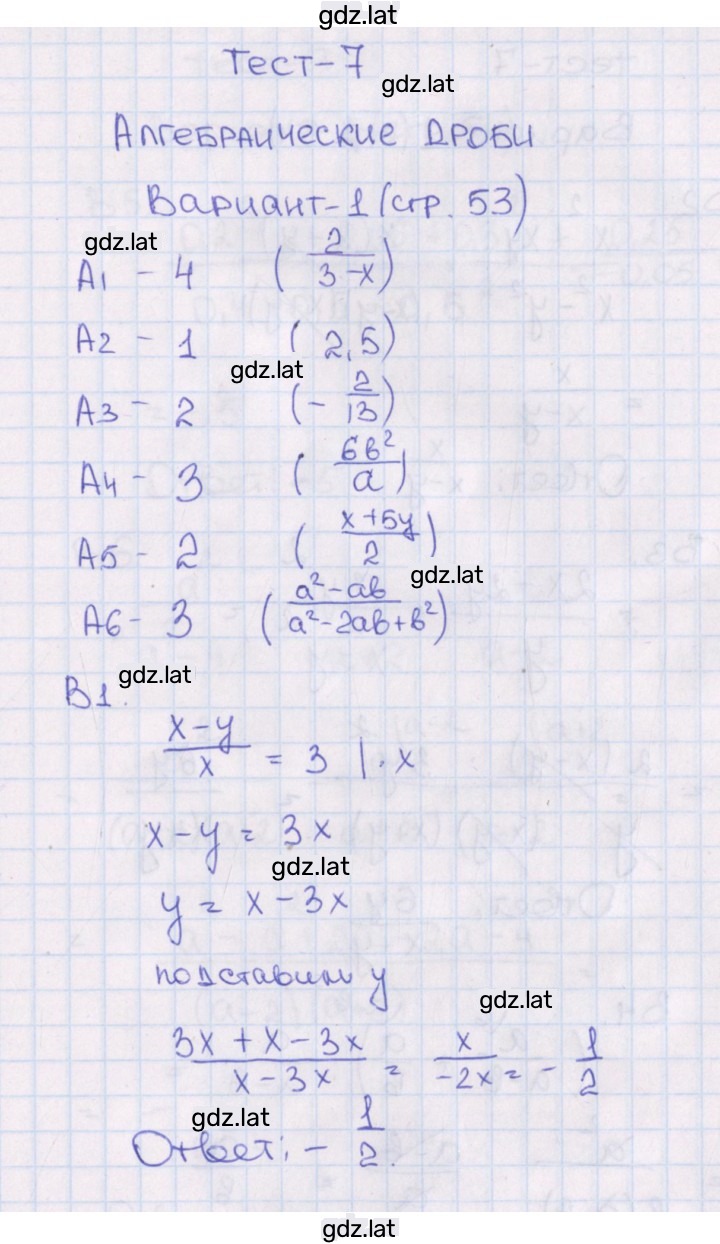 gdz.lat
Тест-7
gdz.lat
Алгебраические дроби
Вариант-1 (стр. 53)
gdz.lat
А1 - 4 (2/(3-x))
А2 - 1 (2,5)
gdz.lat
А3 - 2 (-2/13)
А4 - 3 (6в²/a)
А5 - 2 ((x+5y)/2)
gdz.lat
А6 - 3 ((a²-aв)/(a²-2aв+в²))
gdz.lat
В1.
(x-y)/x = 3 |·x
x-y = 3x
gdz.lat
y = x-3x
подставим y
gdz.lat
(3x+x-3x)/(x-3x) = x/(-2x) = -1/2
gdz.lat
Ответ: -1/2.
gdz.lat